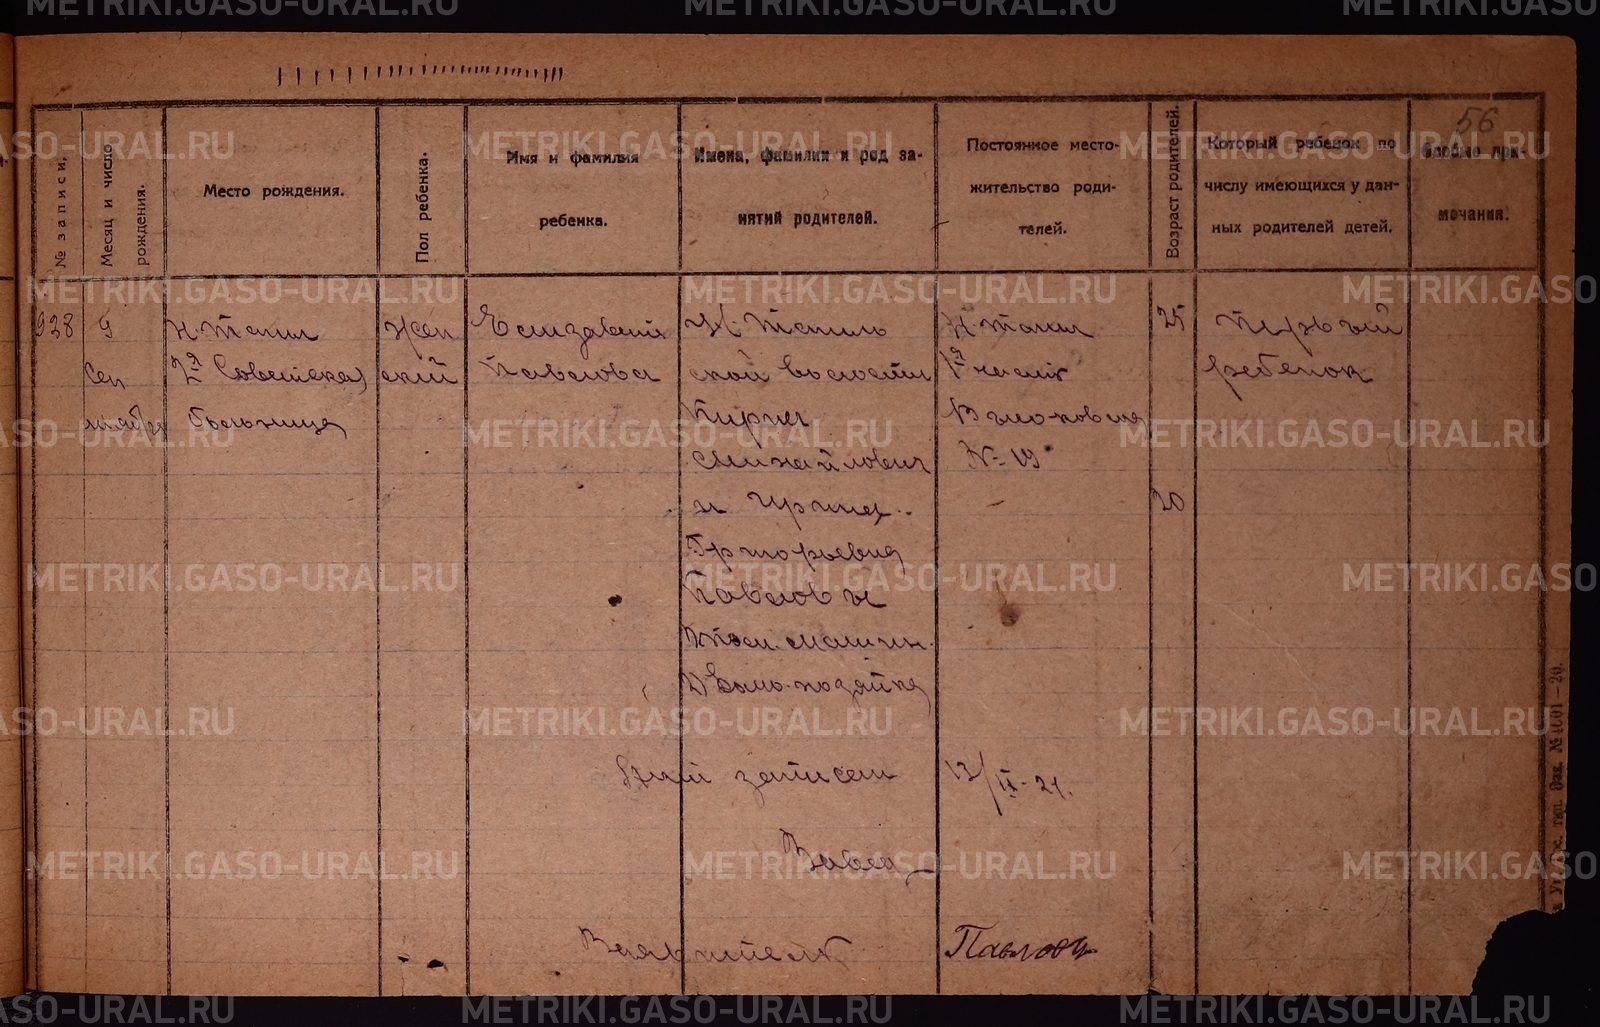 56
№ записи.
Месяц и число рождения.
Место рождения.
Пол ребенка.
Имя и фамилия
ребенка.
Имена, фамилии и род за-
нятий родителей.
Постоянное место-
жительство роди-
телей.
Возраст родителей.
Который ребенок по
числу имеющихся у дан-
ных родителей детей.
Особые при-
мечания.
928
9
Сен
тября
Н. Тагил
2я Советская
больница
Жен
ский
Елизавета
Павлова
Н. Тагиль
ской волости
Кирил
Михайлович
и Ирина
Григорьевна
Павловы
домохозяйка
Н. Тагил
1я часть
№ 19
25
20
Первый
ребенок
записи 12/IX-21.
Завед
Заявитель Павлова
METRIKI.GASO-URAL.RU